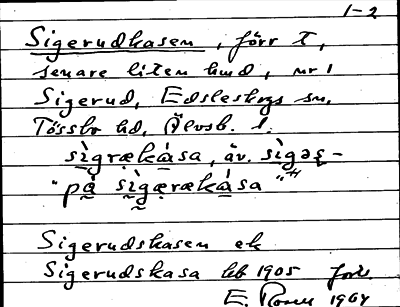 1–2
Sigerudkasen, förr t,
senare liten lmd, nr 1
Sigerud, Edsleskogs sn.
Tössbo hd, Älvsb. l.
sìgrækása, äv. sìgəş–
"på sìgærækása"
Sigerudskasen ek
Sigerudskasa lab 1905
E. Rosen 1964